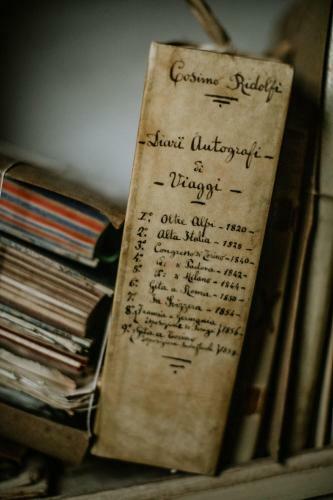 Cosimo Ridolfi
-Diarii Autografi-
di
-Viaggi-
1.º Oltre Alpi - 1820 -
2.º Alta Italia - 1828 -
3.º Congresso di Torino - 1840 -
4.º id: a Padova - 1842 -
5.º id: a Milano - 1844 -
6.º Gita a Roma - 1850 -
7.º In Svizzera - 1854 -
8.º Francia e
Esposizione di Parigi / 1856 -
9.º Gita a Torino